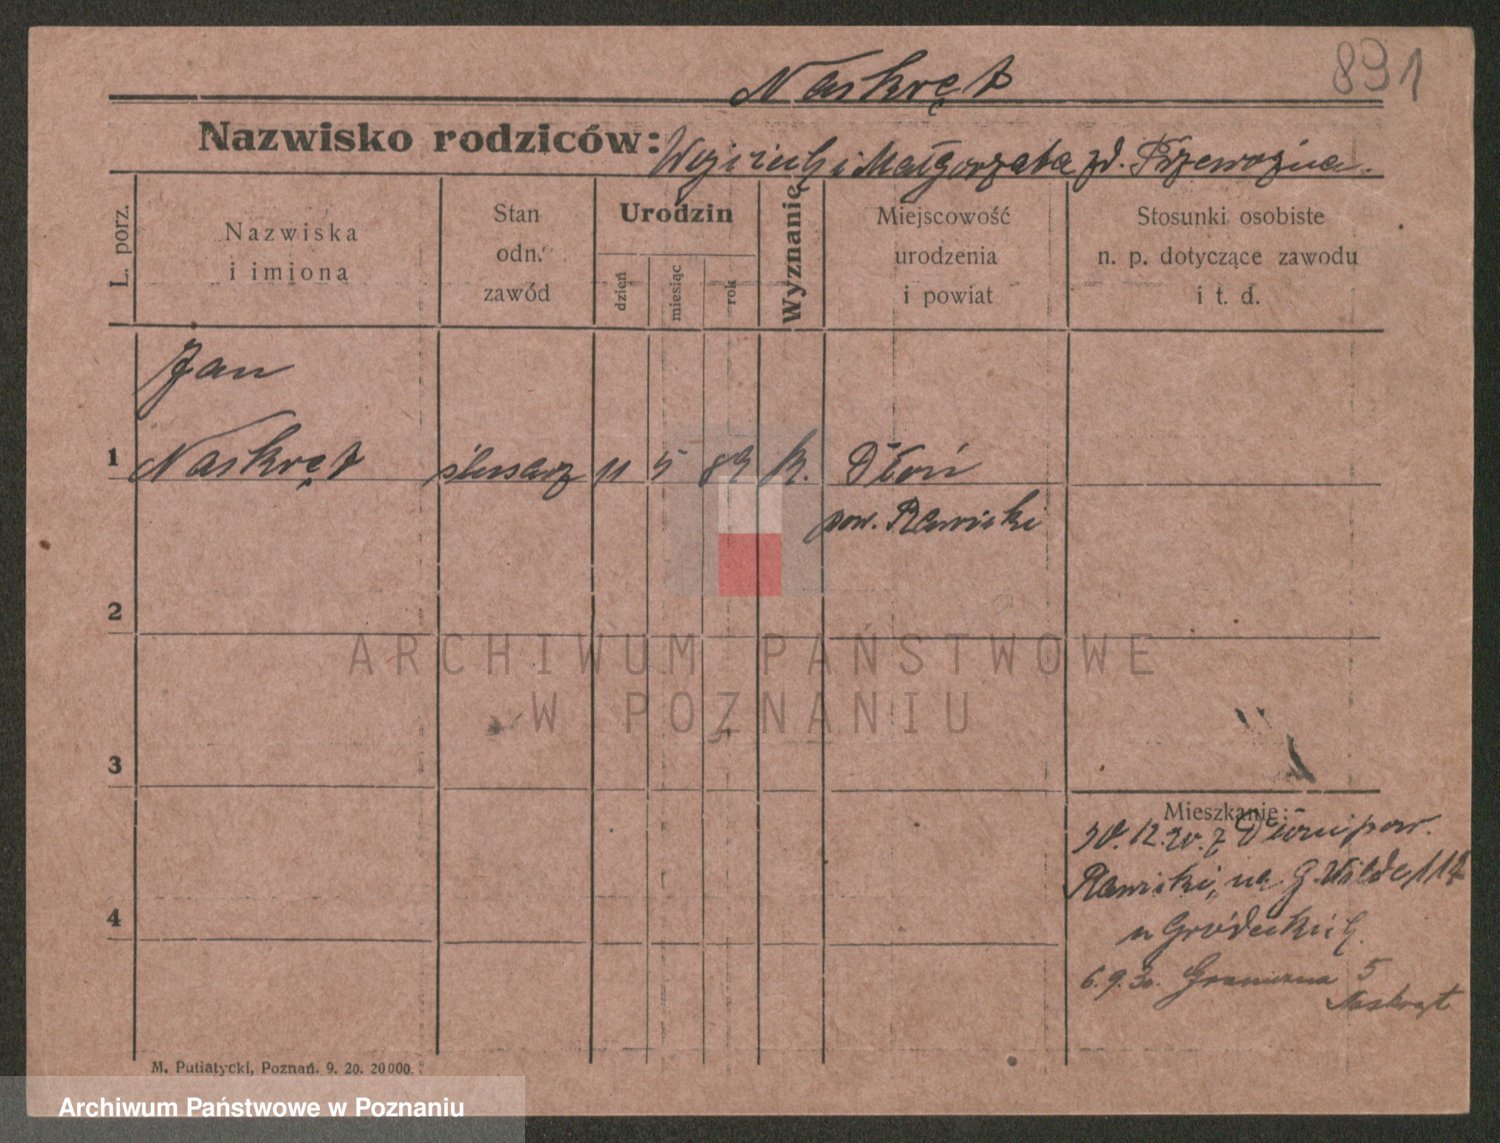 891
Naskręt
Nazwisko rodziców: Wojciech i Małgorzata zd. Przewoźna.
L. porz.
Nazwiska
i imiona
Stan
odn.
zawód
Urodzin
dzień
miesiąc
rok
Wyznanię
Miejscowość
urodzenia
i powiat
Stosunki osobiste
n. p. dotyczące zawodu
i t. d.
Jan
1 Naskręt ślusarz 11 5 89 k. Dłoń
pow. Rawicki
2
ARCHIWUM PAŃSTWOWE
W POZNANIU
3
Mieszkanie:
30.12.20. z Dłoni pow.
Rawicki, na G. Wilde 114
u Gródeckich
4
6.9.30. Graniczna 5
Naskręt
M. Putiatycki, Poznań. 9. 20. 20000.
Archiwum Państwowe w Poznaniu